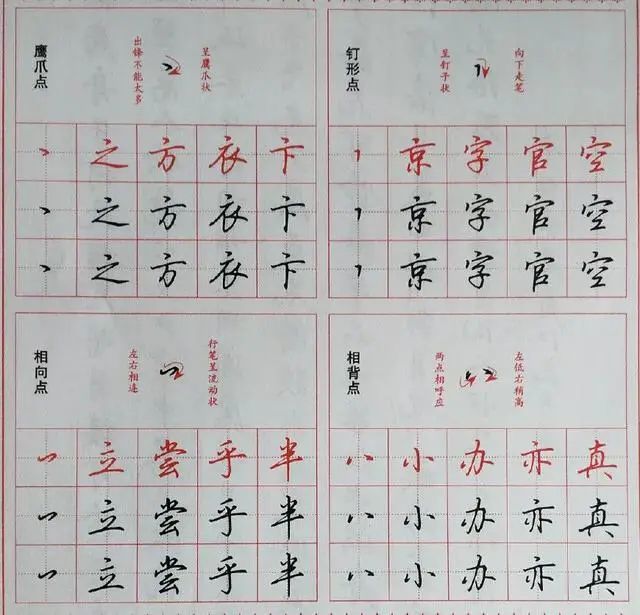 鹰爪点
出锋不能太多
呈鹰爪状
丶 之 方 衣 卞
丶 之 方 衣 卞
丶 之 方 衣 卞
钉形点
呈钉子状
向下走笔
丶 京 字 官 空
丶 京 字 官 空
丶 京 字 官 空
相向点
左右相连
行笔呈流动状
立 尝 乎 半
立 尝 乎 半
立 尝 乎 半
相背点
两点相呼应
左低右稍高
八 小 办 亦 真
八 小 办 亦 真
八 小 办 亦 真